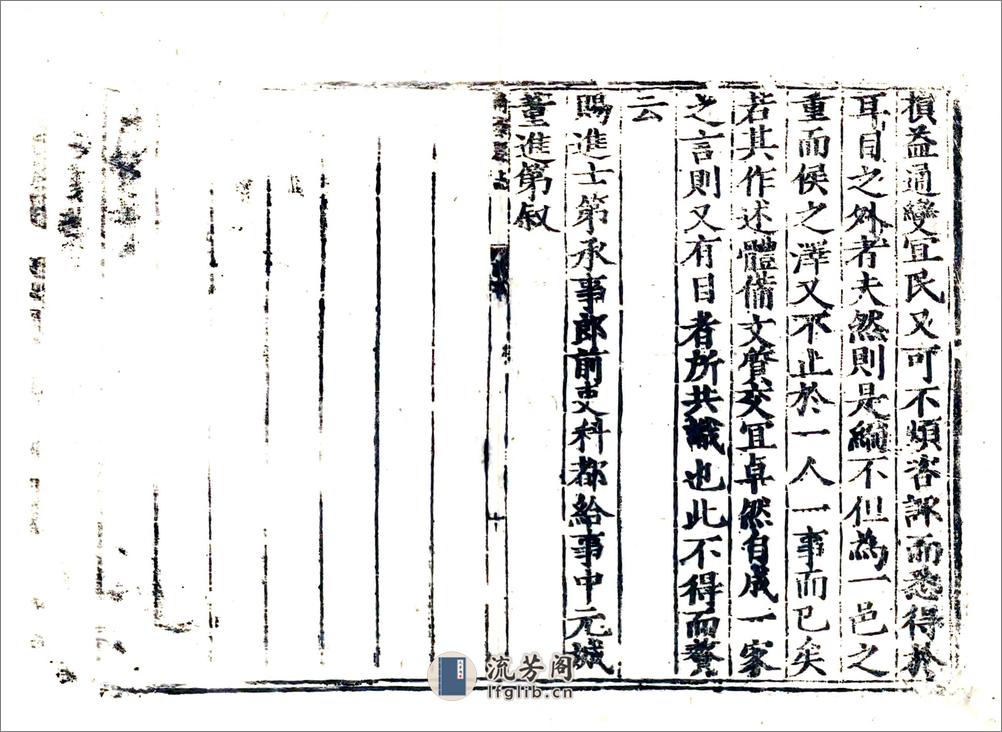 損益通變宜民又可不煩咨諏而悉得於
耳目之外者夫然則是編不但為一邑之
重而侯之澤又不止於一人一事而已矣
若其作述體備文質交宜卓然自成一家
之言則又有目者所共識也此不得而贅
云
賜進士第承事郎前吏科都給事中元城
董進第叙
十
流芳阁
lfglib.cn